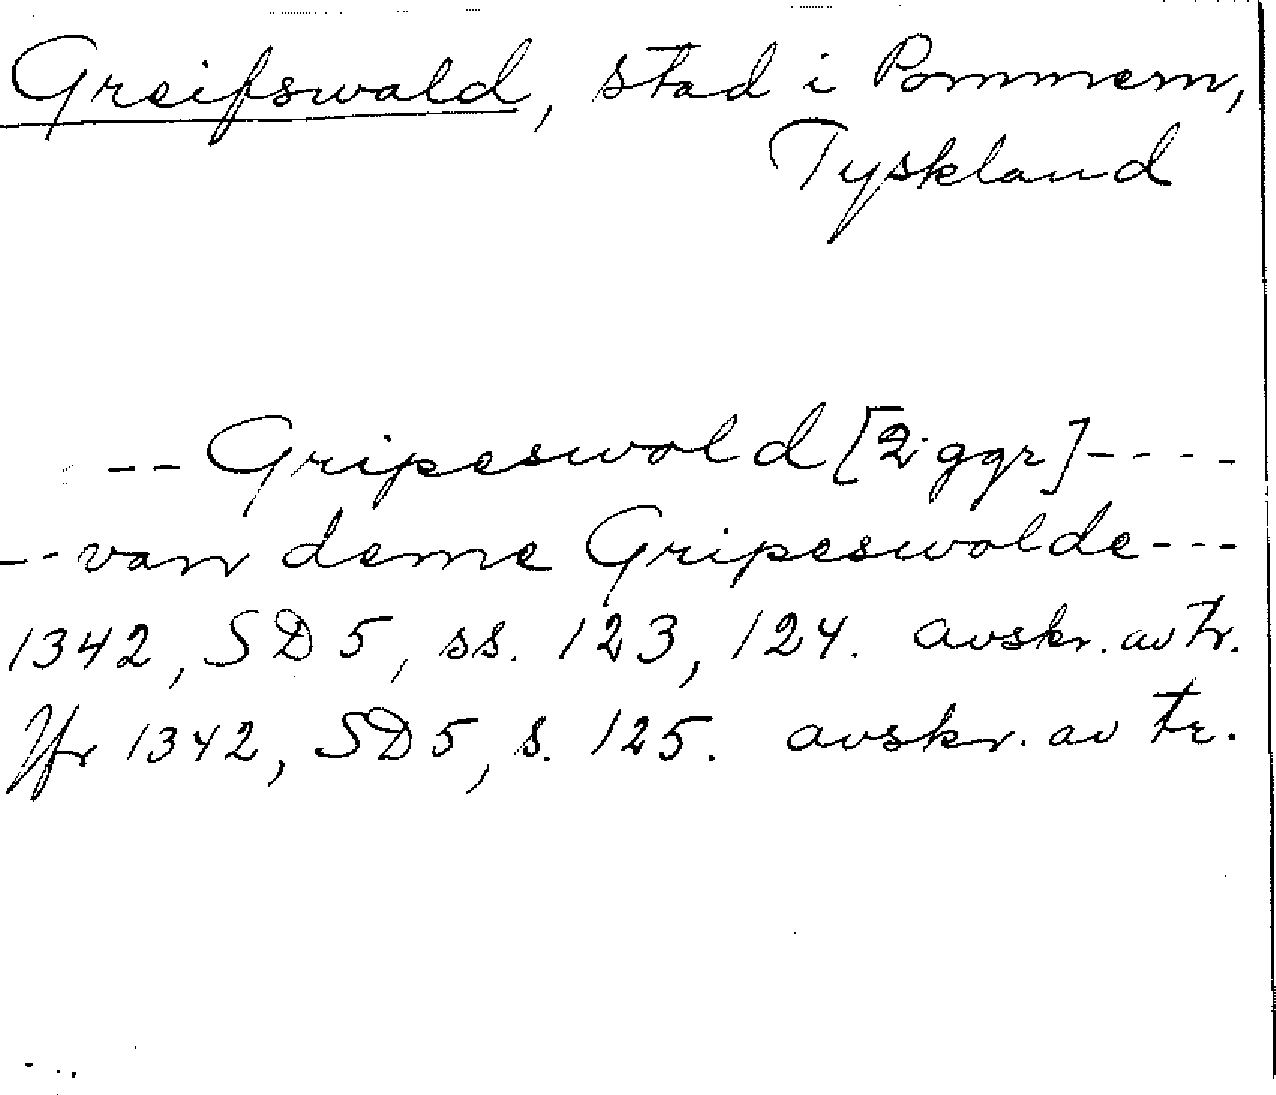 Greifswald, stad i Pommern,
Tyskland
-- Gripeswold [2 ggr] ----
-- van deme Gripeswolde ---
1342, SD 5, ss. 123, 124. avskr. av tr.
Jfr 1342, SD 5, s. 125. avskr. av tr.